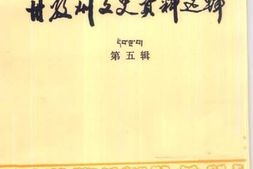 甘孜州文史资料选辑
དཀར་མཛེས
第五辑